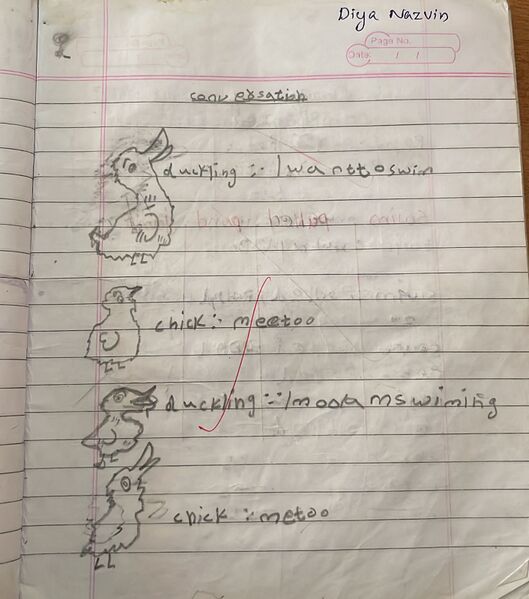 Diya Nazvin
Page No.
Date: / /
conversation
duckling :- I want to swim
chick :- meetoo
duckling :- I
chick :- metoo